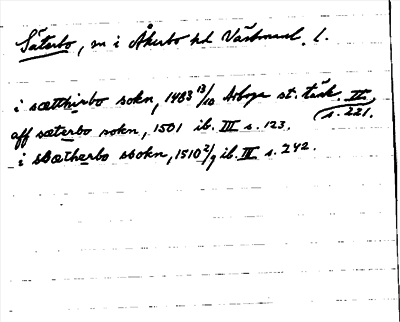 Säterbo, sn i Åkerbo hd Västmanl. l.
i sætthirbo sokn, 1483 13/10 Arboga st: tänk. II,
s. 221.
aff sæterbo sokn, 1501 ib. III s. 123.
i sæætherbo sokn, 1510 2/9 ib. III s. 242.